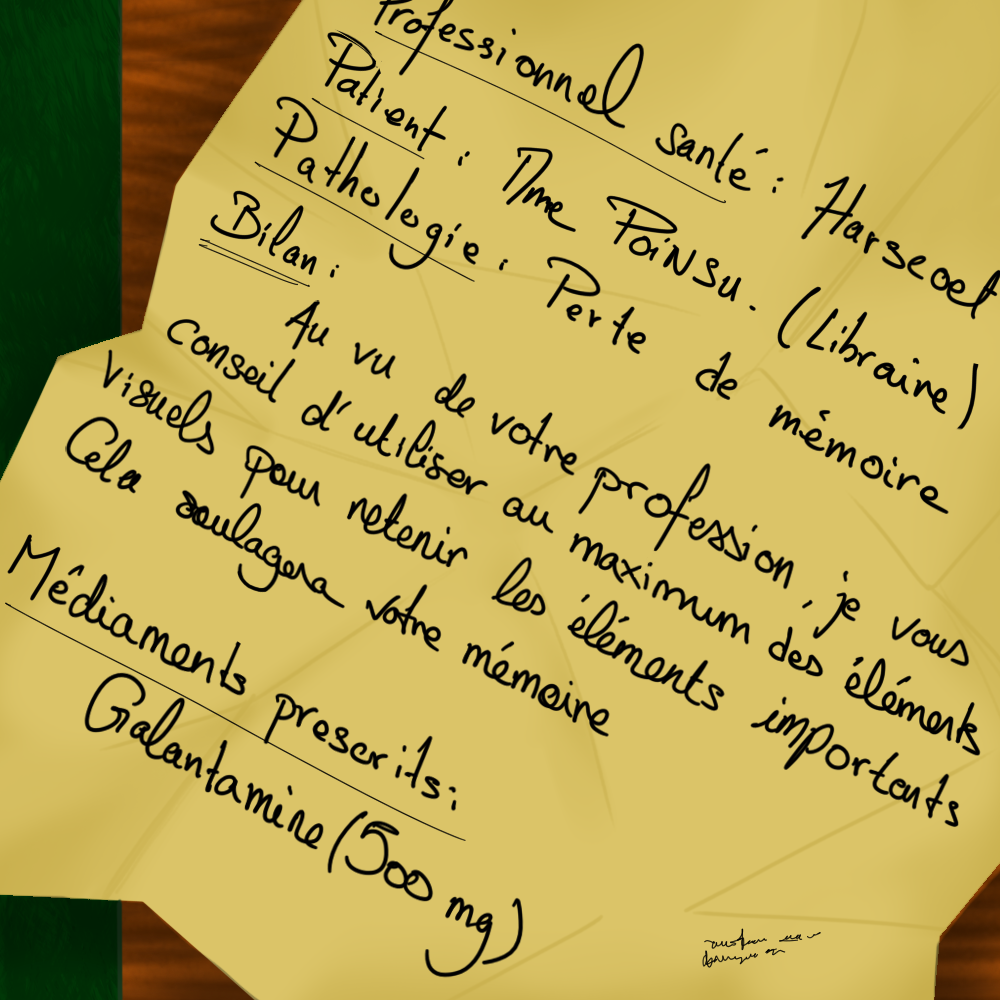 Professionnel santé : Harscoet
Patient : Mme Poinsu. (Libraire)
Pathologie : Perte de mémoire
Bilan :
Au vu de votre profession, je vous
conseil d'utiliser au maximum des éléments
visuels pour retenir les éléments importants
Cela soulagera votre mémoire
Médiaments prescrits :
Galantamine (500 mg)